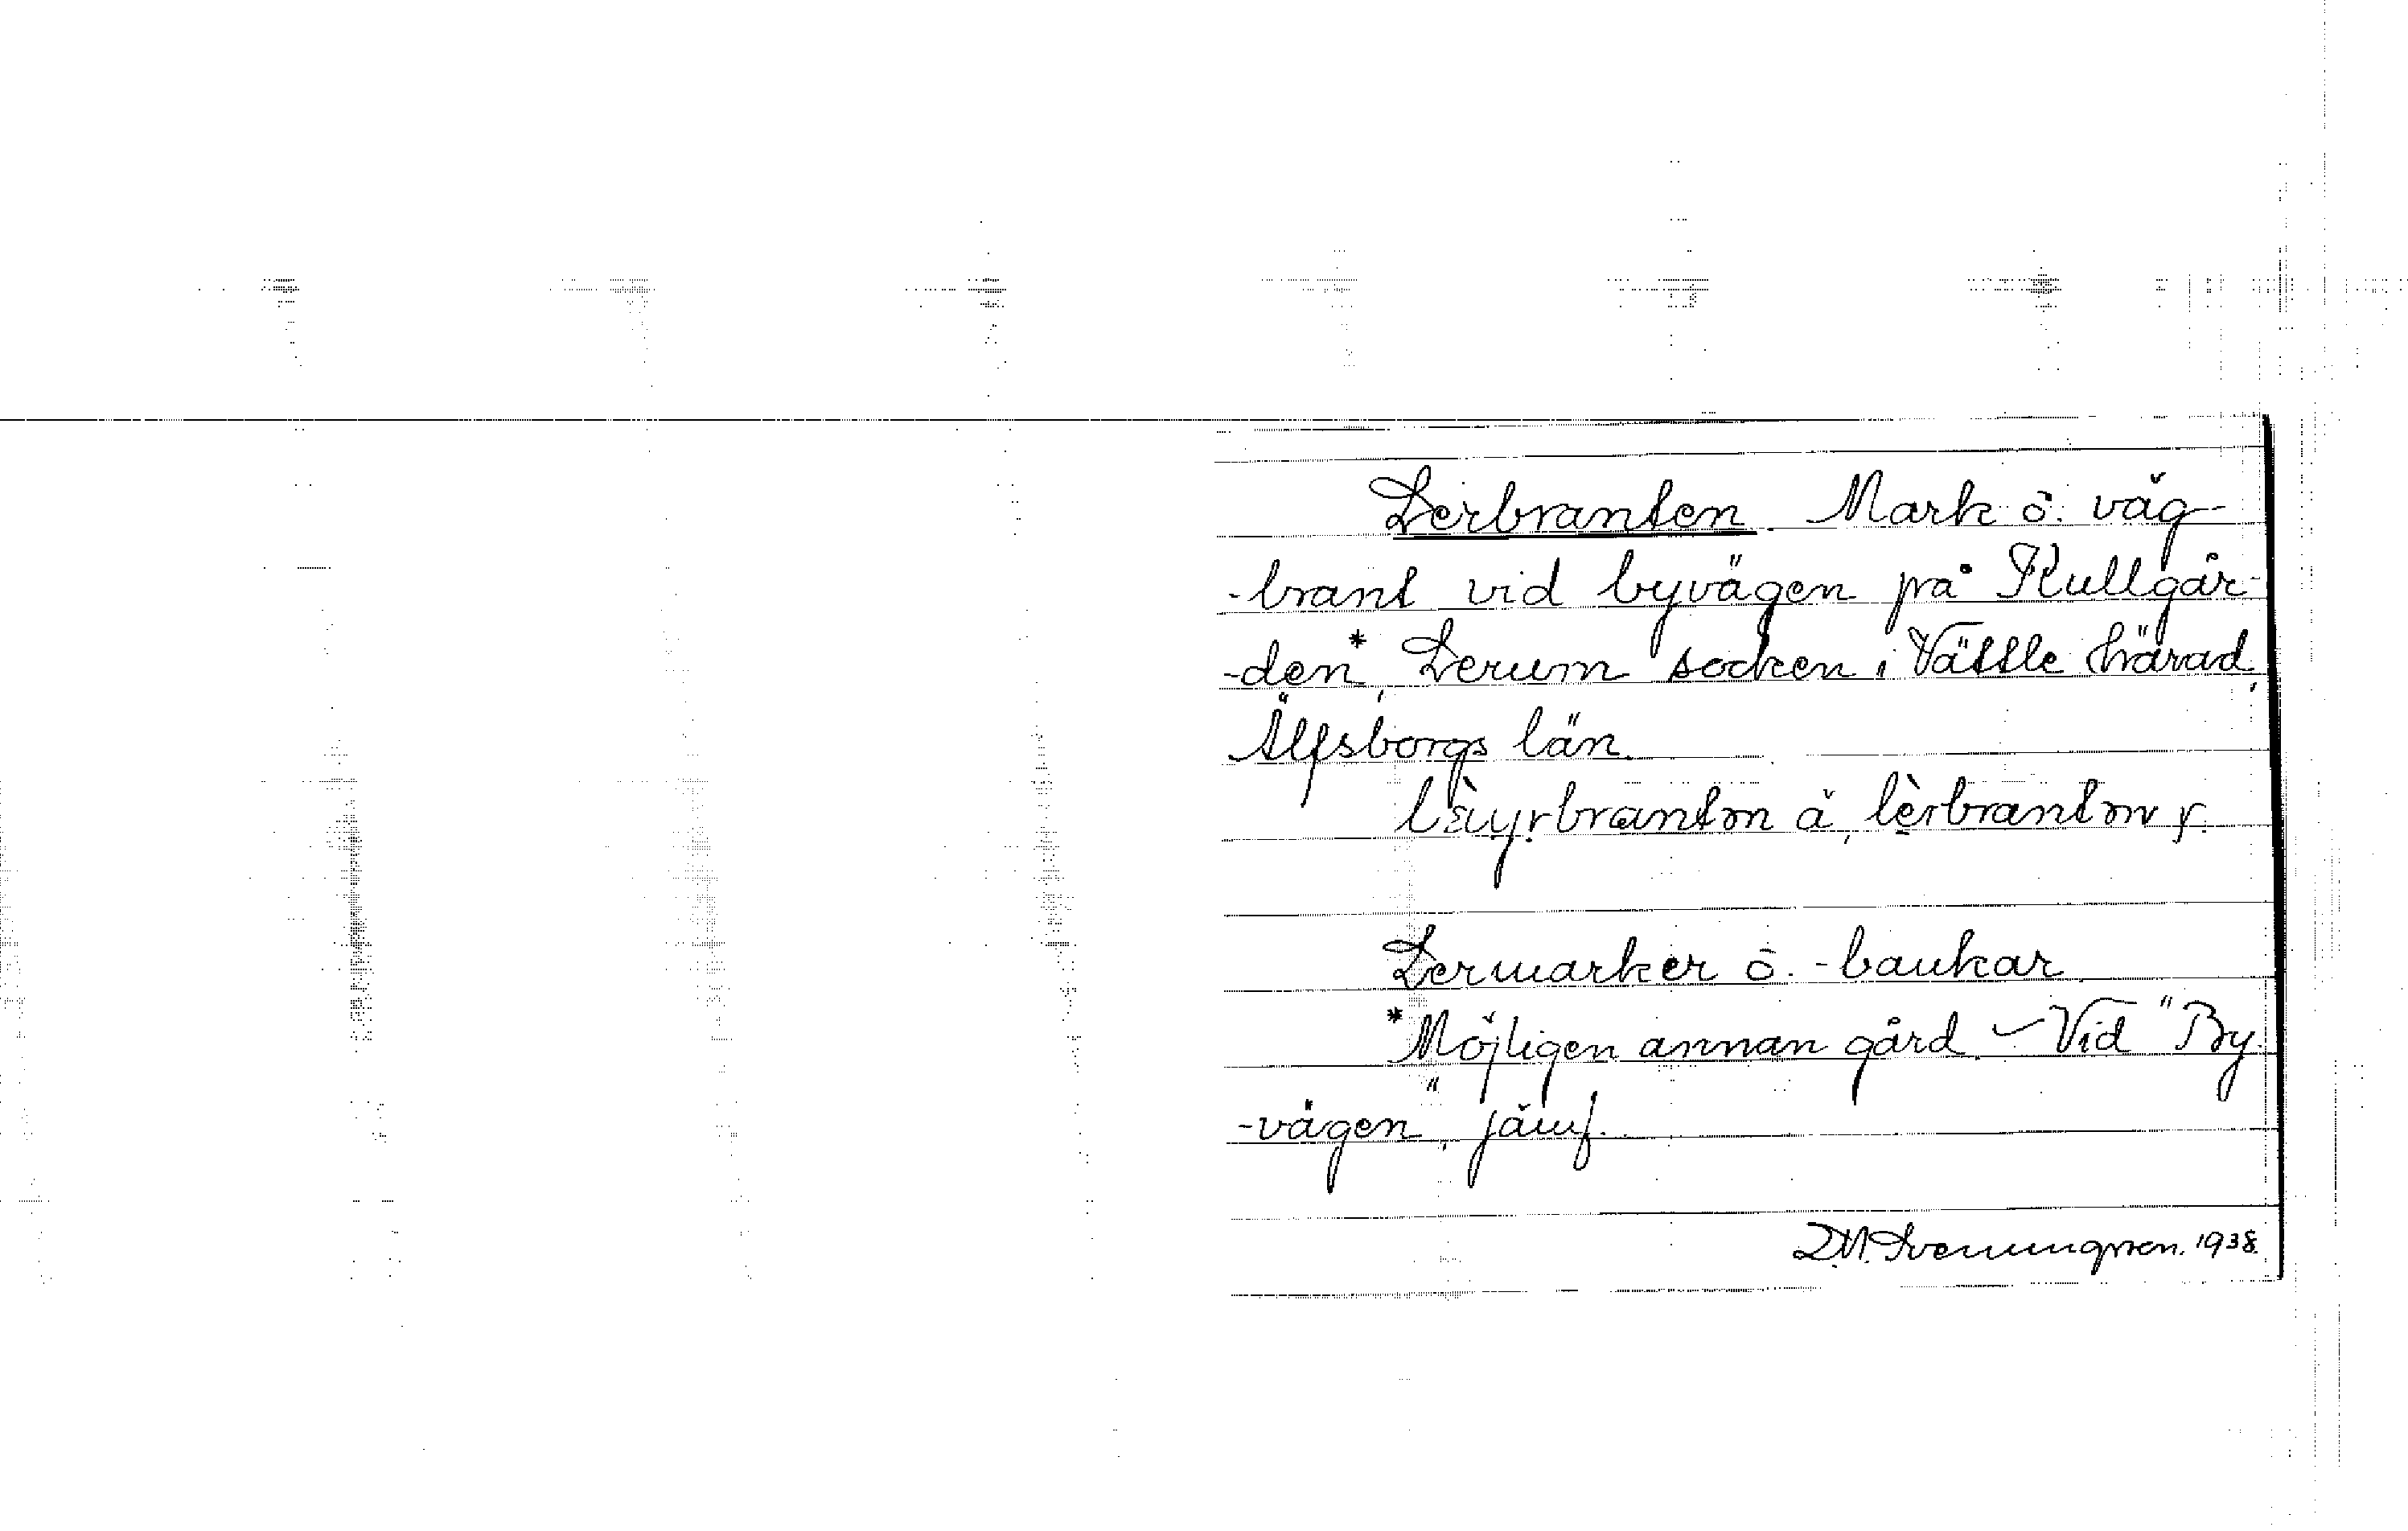 Lerbranten. Mark o. väg-
-brant vid byvägen på Kullgår-
-den*, Lerum socken i Vättle härad,
Älfsborgs län.
lèyrbrantən ä, lèrbrantən y.
Lermarker o. -bankar.
*Möjligen annan gård. – Vid "By-
-vägen", jämf.
D.M. Svenungsson. 1938.